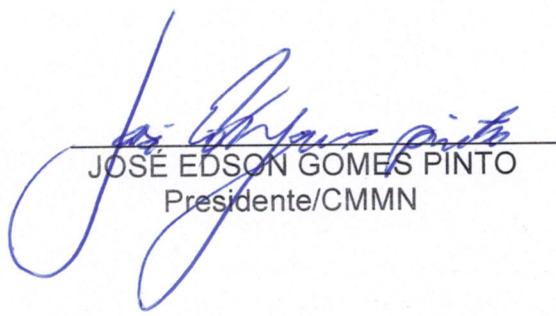 José Edson Gomes Pinto
JOSÉ EDSON GOMES PINTO
Presidente/CMMN